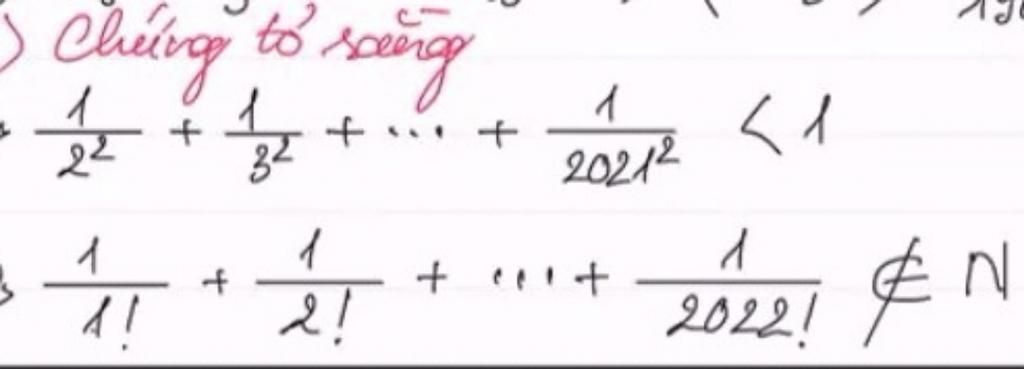 ) Chứng tỏ rằng
1/2² + 1/3² + ... + 1/2021² < 1
1/1! + 1/2! + ... + 1/2022! ∉ N